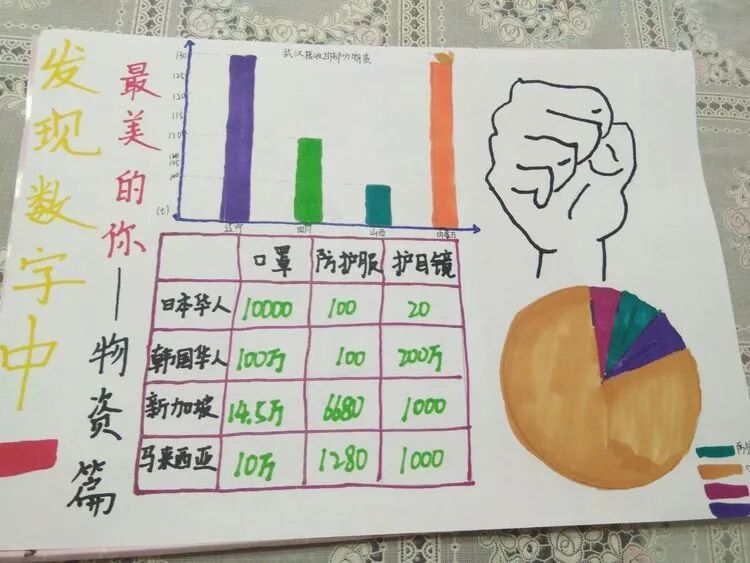 发现数字中
最美的你—物资篇
武汉接收的部分物资
130
125
120
115
110
100
(t)
辽宁 四川 山西 内蒙古
口罩 防护服 护目镜
日本华人 10000 100 20
韩国华人 100万 100 200万
新加坡 14.5万 6680 1000
马来西亚 10万 1280 1000